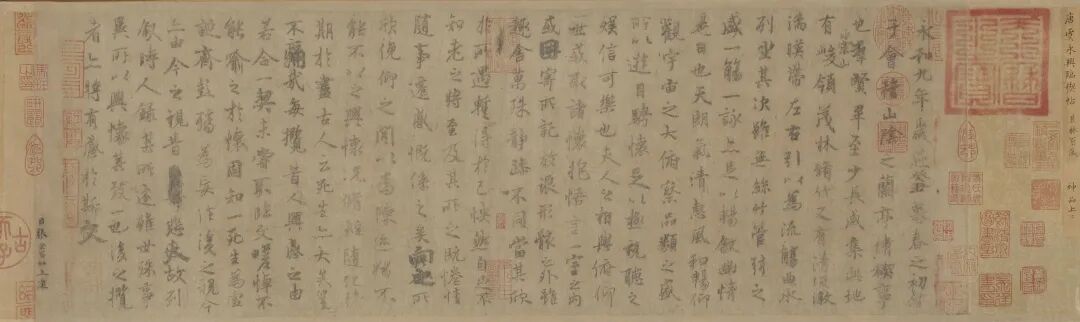 唐虞永興臨禊帖
神品上上
永和九年歲在癸丑暮春之初會
于會稽山陰之蘭亭脩禊事
也群賢畢至少長咸集此地
有崇山峻領茂林脩竹又有清流激
湍暎帶左右引以為流觴曲水
列坐其次雖無絲竹管弦之
盛一觴一詠亦足以暢敘幽情
是日也天朗氣清惠風和暢仰
觀宇宙之大俯察品類之盛
所以遊目騁懷足以極視聽之
娛信可樂也夫人之相與俯仰
一世或取諸懷抱悟言一室之內
或因寄所託放浪形骸之外雖
趣舍萬殊靜躁不同當其欣
於所遇暫得於己快然自足不
知老之將至及其所之既惓情
隨事遷感慨係之矣向之所
欣俛仰之閒以為陳迹猶不
能不以之興懷況脩短隨化終
期於盡古人云死生亦大矣豈
不痛哉每攬昔人興感之由
若合一契未嘗不臨文嗟悼不
能喻之於懷固知一死生為虛
誕齊彭殤為妄作後之視今
亦由今之視昔悲夫故列
敘時人錄其所述雖世殊事
異所以興懷其致一也後之攬
者亦將有感於斯文
臣張金界奴上進